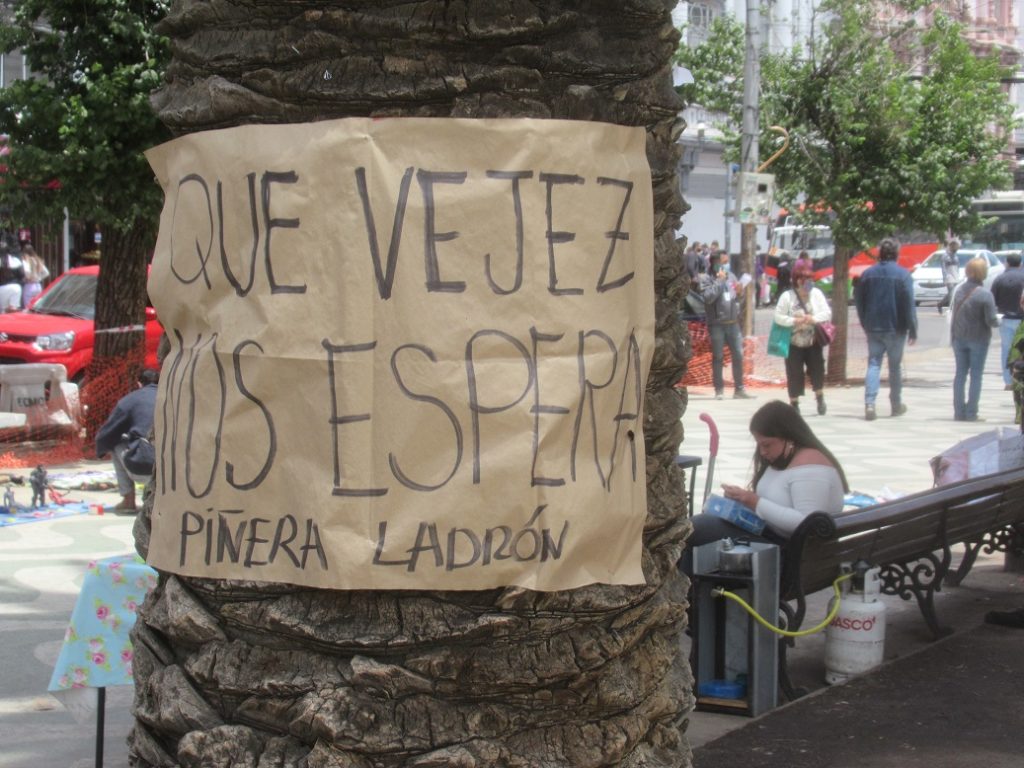 QUE VEJEZ
NOS ESPERA
PIÑERA LADRÓN
GASCO